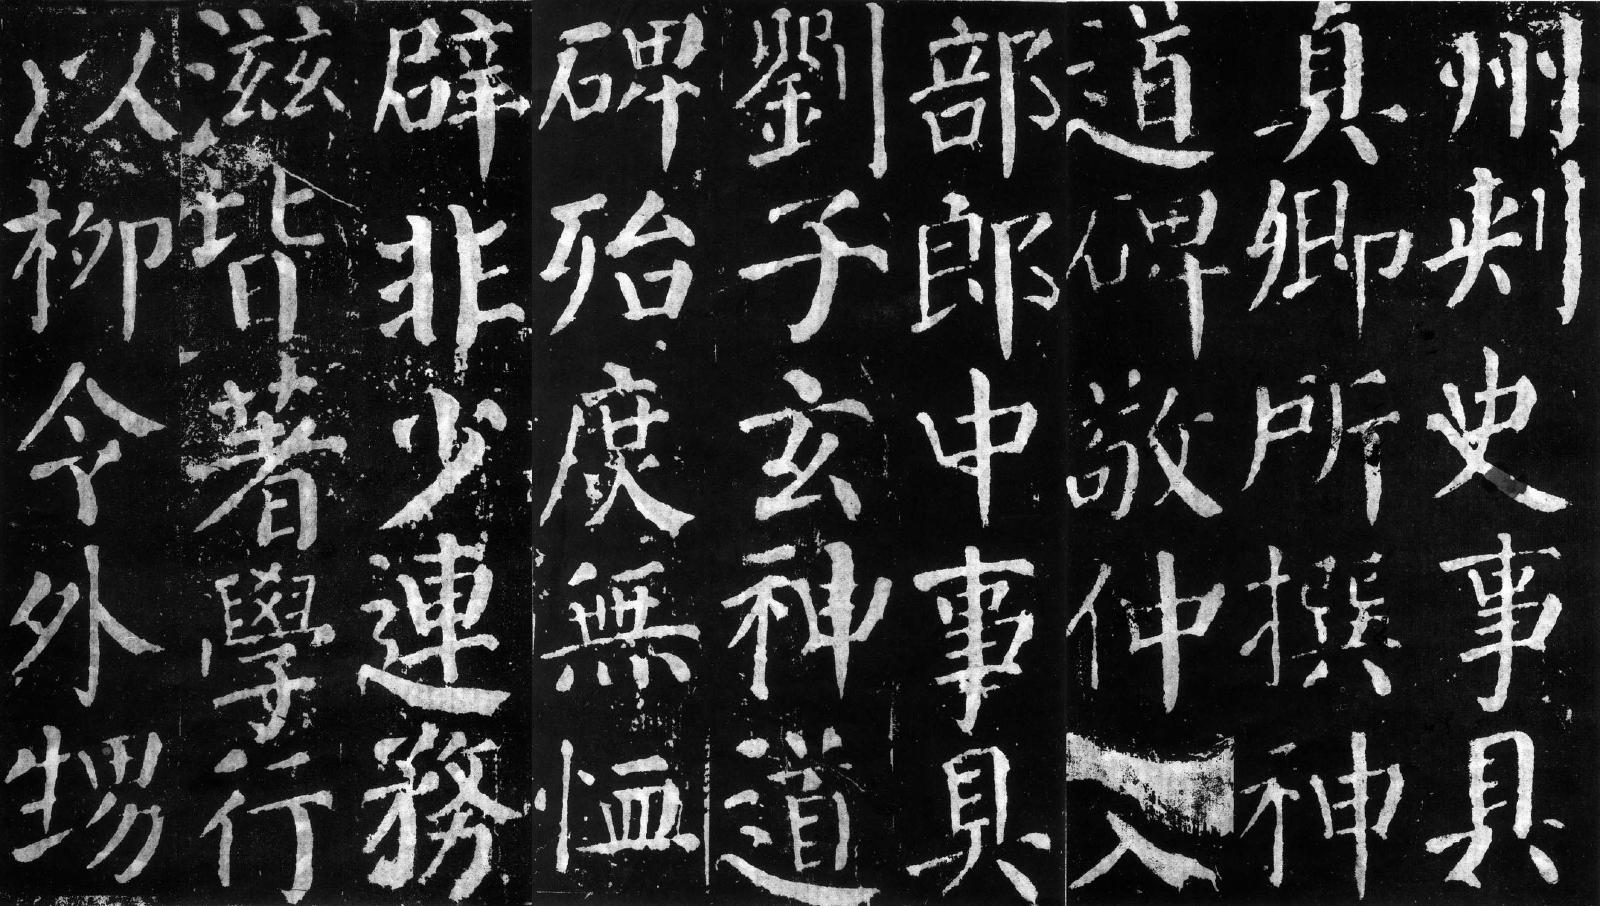 州刾史事具
真卿所撰神
道碑敬仲入
部郎中事具
劉子玄神道
碑殆庶無恤
辟非少連務
滋皆著學行
以柳令外甥